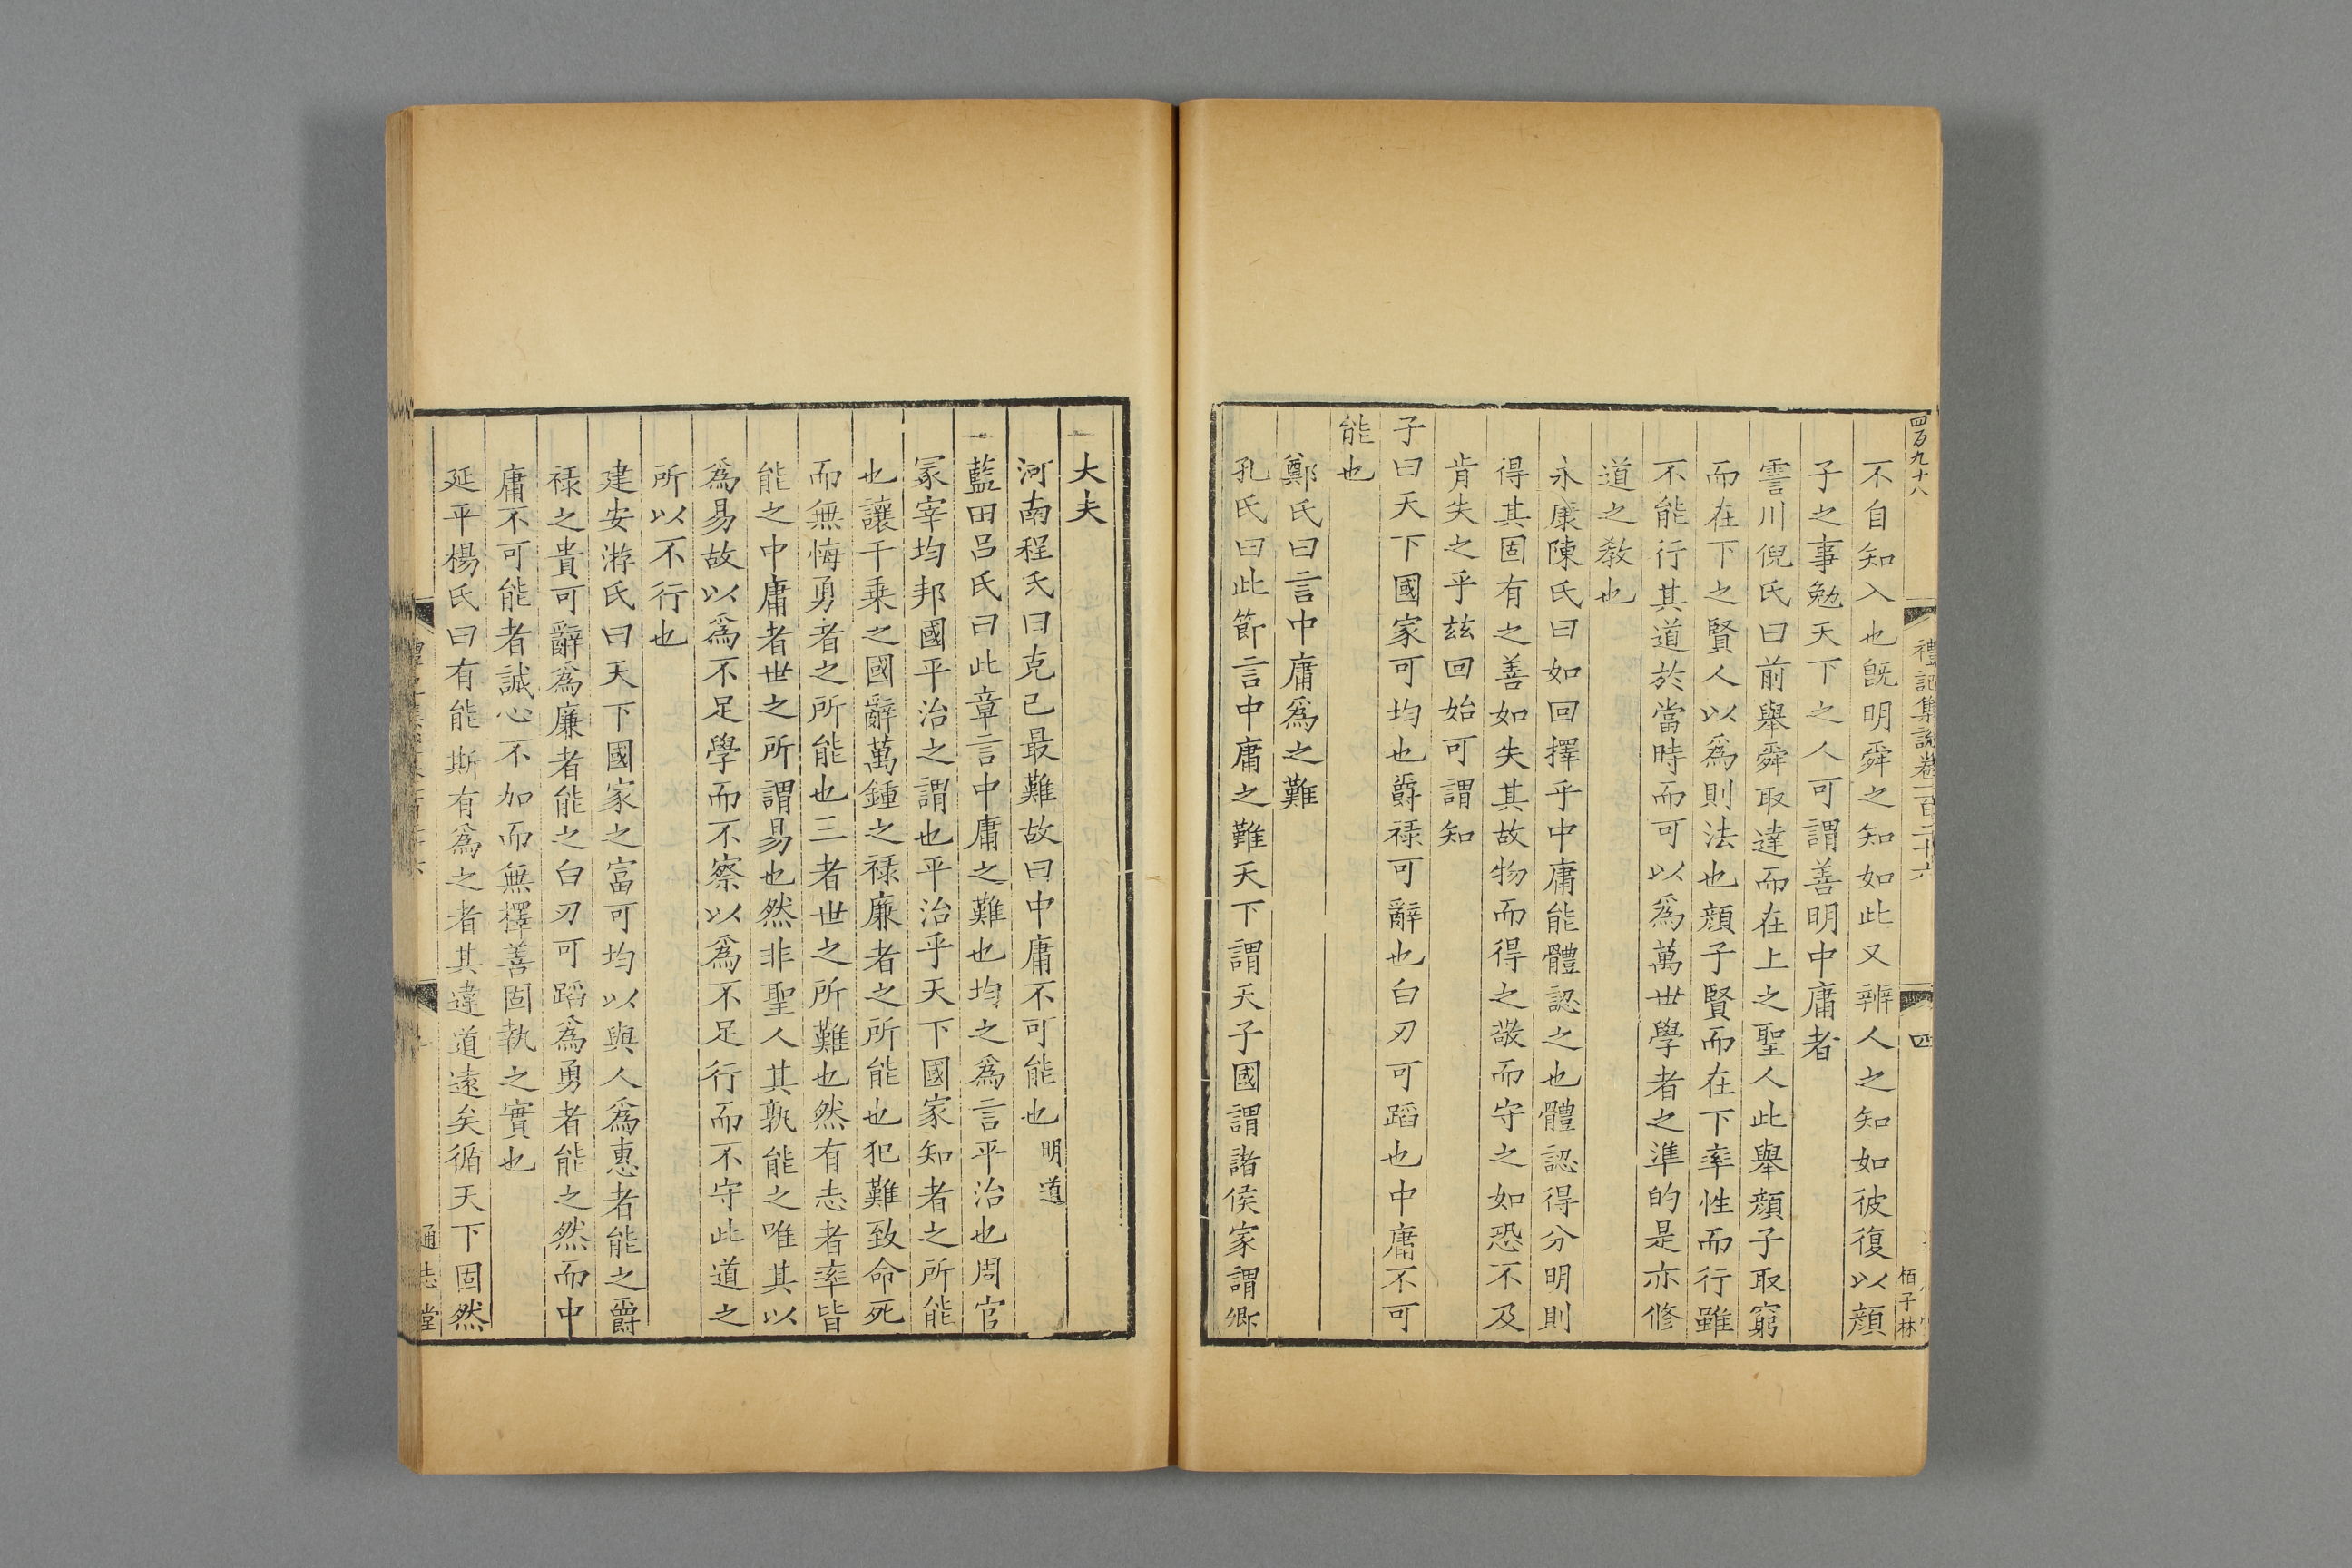 四百九十八
禮記集說卷一百二十六
四
栢子林
不自知入也旣明舜之知如此又辨人之知如彼復以顔
子之事勉天下之人可謂善明中庸者
霅川倪氏曰前舉舜取達而在上之聖人此舉顔子取窮
而在下之賢人以爲則法也顔子賢而在下率性而行雖
不能行其道於當時而可以爲萬世學者之準的是亦修
道之教也
永康陳氏曰如回擇乎中庸能體認之也體認得分明則
得其固有之善如失其故物而得之敬而守之如恐不及
肯失之乎玆回始可謂知
子曰天下國家可均也爵祿可辭也白刃可蹈也中庸不可
能也
鄭氏曰言中庸爲之難
孔氏曰此節言中庸之難天下謂天子國謂諸侯家謂卿
大夫
河南程氏曰克已最難故曰中庸不可能也明道
藍田吕氏曰此章言中庸之難也均之爲言平治也周官
冢宰均邦國平治之謂也平治乎天下國家知者之所能
也讓千乗之國辭萬鍾之祿廉者之所能也犯難致命死
而無悔勇者之所能也三者世之所難也然有志者率皆
能之中庸者世之所謂易也然非聖人其孰能之唯其以
爲易故以爲不足學而不察以爲不足行而不守此道之
所以不行也
建安游氏曰天下國家之富可均以與人爲惠者能之爵
祿之貴可辭爲廉者能之白刃可蹈爲勇者能之然而中
庸不可能者誠心不加而無擇善固執之實也
延平楊氏曰有能斯有爲之者其違道遠矣循天下固然
通志堂